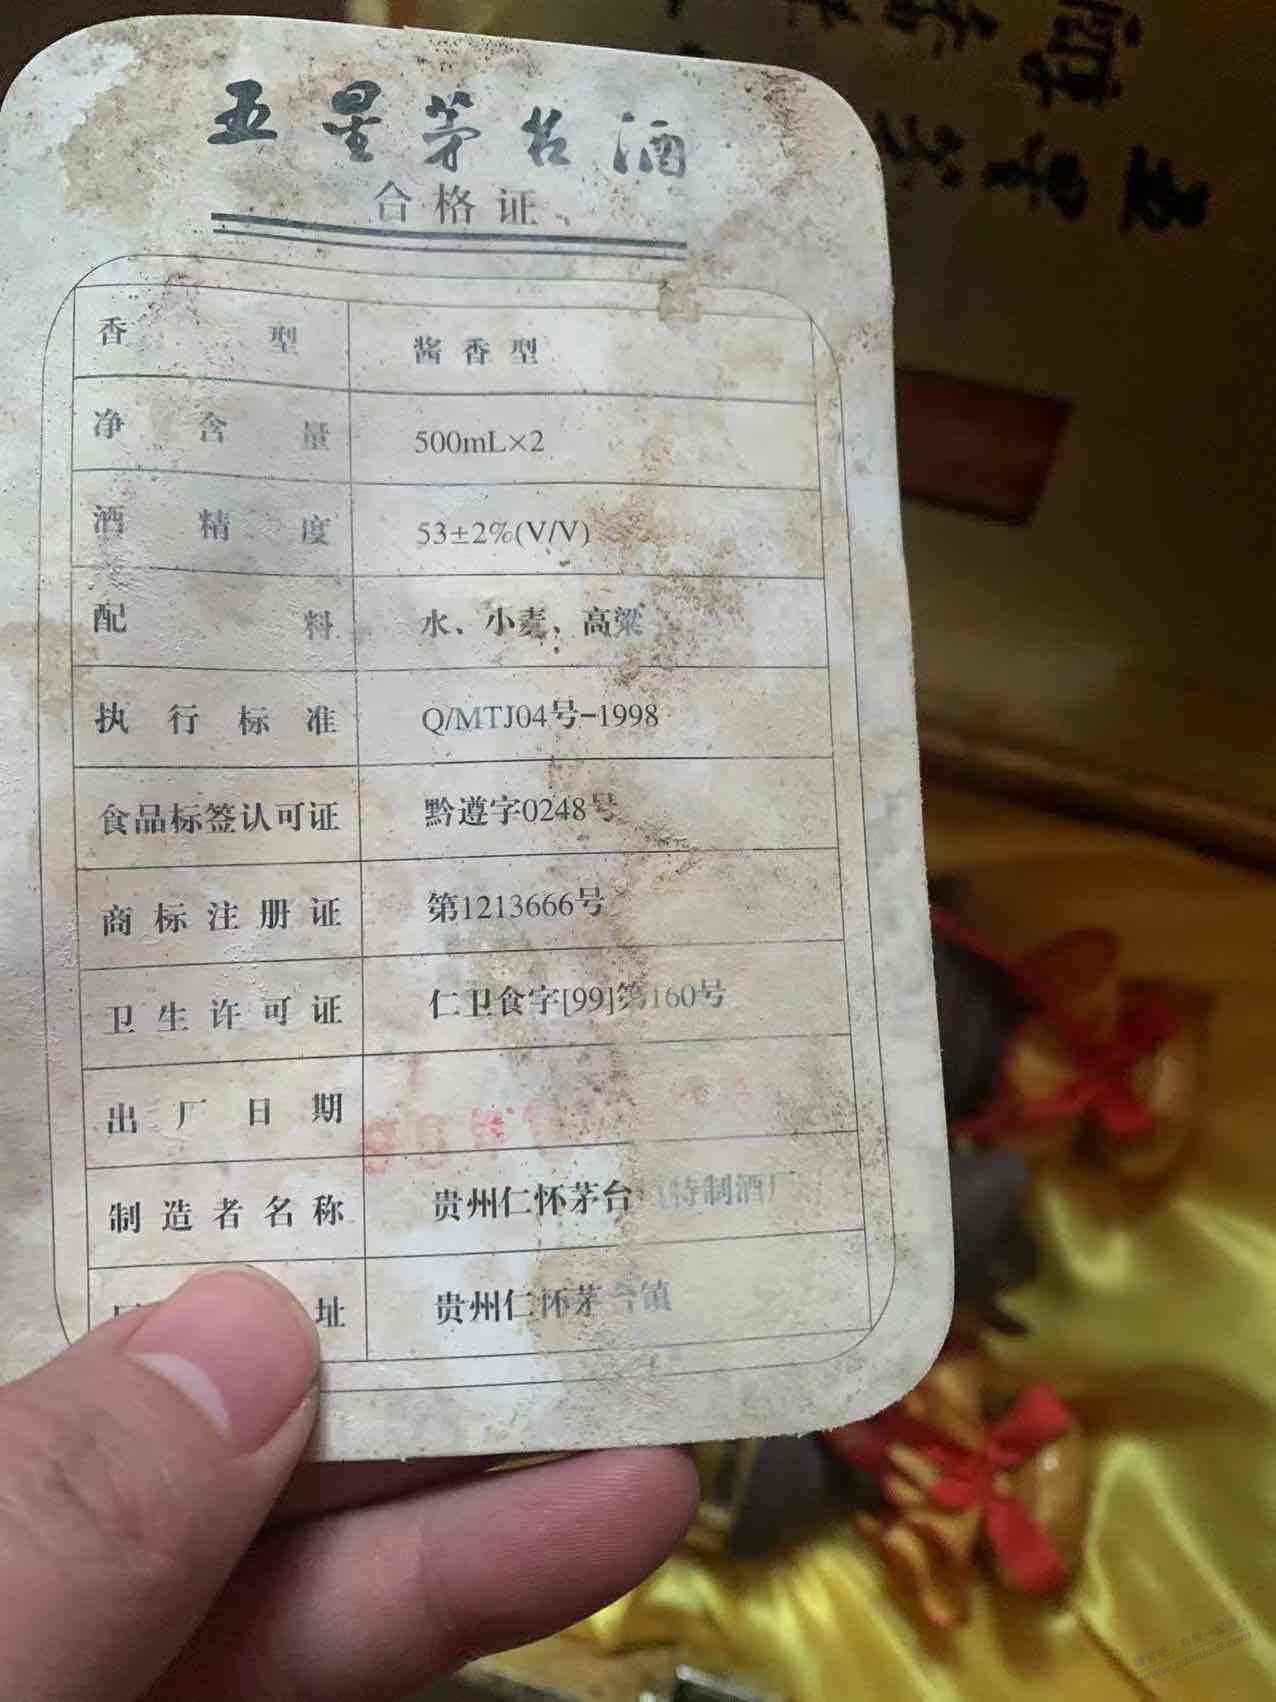 亚星茅台酒
合格证
香型 酱香型
净含量 500mL×2
酒精度 53±2%(V/V)
配料 水、小麦、高粱
执行标准 Q/MTJ04号-1998
食品标签认可证 黔遵字0248号
商标注册证 第1213666号
卫生许可证 仁卫食字[99]第160号
出厂日期
制造者名称 贵州仁怀茅台镇特制酒厂
址 贵州仁怀茅台镇